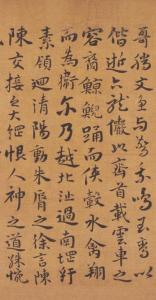 哥騰文魚以警乘鳴玉鸞以
偕逝六龍儼以齊首載雲車之
容裔鯨鯢踊而俠轂水禽翔
而為衛尔乃越北沚過南堽紆
素領迴清陽動朱脣以徐言陳
交接之大綱恨人神之道殊